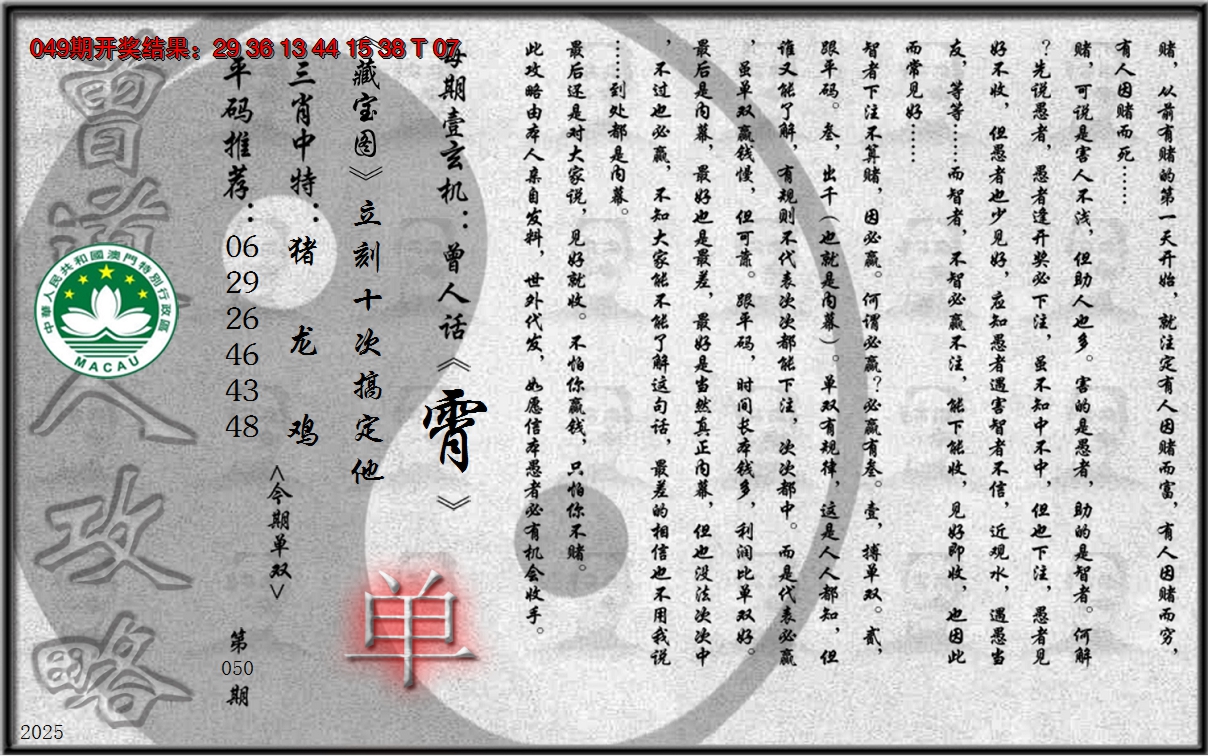 049期开奖结果：29 36 13 44 15 38 T 07
赌，从前有赌的第一天开始，就注定有人因赌而富，有人因赌而穷，
有人因赌而死……
赌，可说是害人不浅，但助人也多。害的是愚者，助的是智者。何解
？先说愚者，愚者逢开奖必下注，虽不知中不中，但也下注，愚者见
好不收，但愚者也少见好，应知愚者遇害智者不信，近观水，遇愚当
友，等等……而智者，不智必赢不注，能下能收，见好即收，也因此
而常见好……
智者下注不算赌，因必赢。何谓必赢？必赢有叁。壹，搏单双。贰，
跟平码。叁，出千（也就是内幕）。单双有规律，这是人人都知，但
谁又能了解，有规则不代表次次都能下注，次次都中。而是代表必赢
，虽单双赢钱慢，但可靠。跟平码，时间长本钱多，利润比单双好。
最后是内幕，最好也是最差，最好是当然真正内幕，但也没法次次中
，不过也必赢，不知大家能不能了解这句话，最差的相信也不用我说
……到处都是内幕。
最后还是对大家说，见好就收。不怕你赢钱，只怕你不赌。
此攻略由本人亲自发料，世外代发，如愿信本愚者必有机会收手。
每期壹玄机：曾人话《霄》
《藏宝图》立刻十次搞定他
单
三肖中特：猪 龙 鸡
<今期单双>
平码推荐：06 29 26 46 43 48
第050期
曾道人攻略
中華人民共和國澳門特別行政區
MACAU
2025